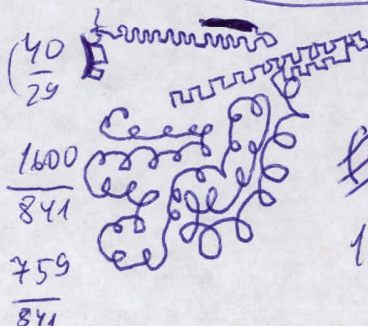 (40
29
1600
841
759
841
1